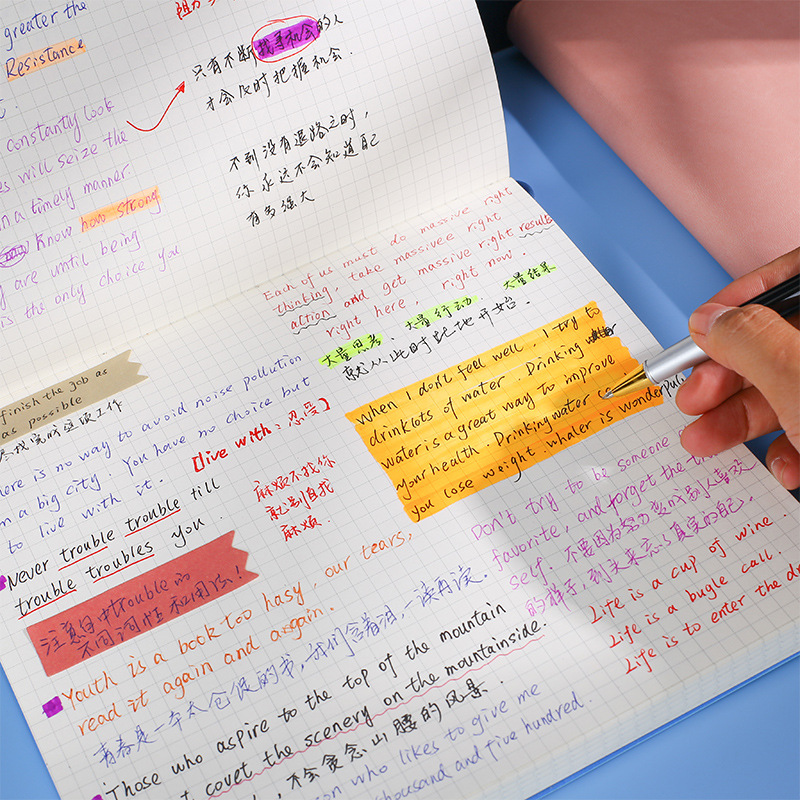 greater the
Resistance
constantly look
es will seize the
in a timely manner.
Know how strong
y are until being
is the only choice you
只有不断找寻机会的人
才会及时把握机会.
不到没有退路之时，
你永远不会知道自己
有多强大
Each of us must do massive right
thinking, take massivee right
action and get massive right results
right here, right now.
大量思考、大量行动、大量结果
就从此时此地开始.
finish the job as
as possible
here is no way to avoid noise pollution
in a big city. You have no choice but
to live with it.
【live with：忍受】
Never trouble trouble till
trouble troubles you.
麻烦不找你
就别自找
麻烦.
注意句中trouble的
不同词性和用法！
when I don't feel well. I try to
drink lots of water. Drinking
water is a great way to improve
your health. Drinking water
you lose weight. whaler is wonderful
Don't try to be someone
favorite, and forget the
self. 不要因为努力变成别人喜欢
的样子，到头来忘了真实的自己.
Life is a cup of wine.
Life is a bugle call.
Life is to enter the
Youth is a book too hasy, our tears,
read it again and a again.
青春是一本太仓促的书，我们含着泪，一读再读.
Those who aspire to the top of the mountain
t covet the scenery on the mountainside.
，不会贪恋山腰的风景.
son who likes to give me
thousand and five hundred.